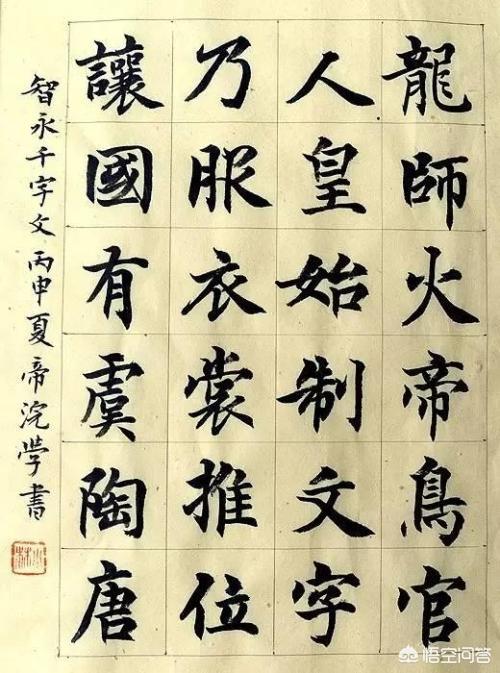 龍師火帝鳥官
人皇始制文字
乃服衣裳推位
讓國有虞陶唐
智永千字文丙申夏帝浣學書
悟空问答